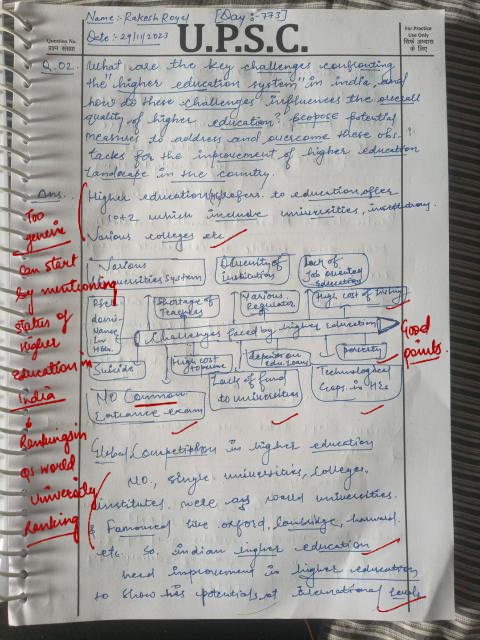 Name:- Rakesh Royal [Day:- 773]
Date:- 29/11/2023
U.P.S.C.
Question No.
प्रश्न संख्या
For Practice
Use Only
सिर्फ अभ्यास
के लिए
Q.02. What are the key challenges confronting
the "higher education system" in india, and
how do these challenges influences the overall
quality of higher education? propose potential
measures to address and overcome these obs-
tacles for the improvement of higher education
landscape in the country.
Ans. Higher education refers to education after
10+2 which include universities, institutions,
Various colleges etc.
Too
generic
can start
by mentioning
status of
Higher
Education in
India
&
Rankings in
QS world
University
Ranking
Various
Universities System
Diversity of
institution
Lack of
Job oriented
Education
Shortage of
Teachers
Various
Regulator
High cost of living
Challenges faced by higher education
Good
points.
Suicide
High cost
depends on
Edu. loan
poverty
NO Common
Entrance exam
Lack of fund
to universities
Technological
Gaps in HEs
Global Competition in higher education
NO, single universities, colleges,
institutes were as world universities.
& Famoused like oxford, cambridge, harward.
etc. So indian higher education
need improvement in higher education
to show his potentials at international levels